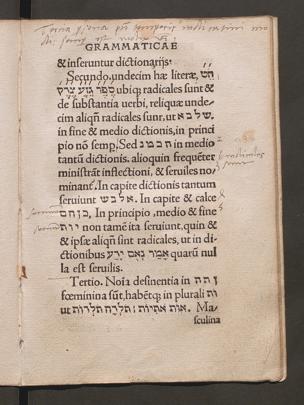 GRAMMATICAE
& inseruntur dictionarijs.
Secundo, undecim hæ literæ, חט,
ספר גזע צדק ubiq; radicales sunt &
de substantia uerbi, reliquæ unde-
cim aliqñ radicales sunt, ut שלבא,
in fine & medio dictionis, in princi
pio nõ semp, Sed הבמנ in medio
tantũ dictionis. alioquin frequẽter
ministrãt inflectioni, & seruiles no
minant̃. In capite dictionis tantum
seruiunt אלבש. In capite & calce
כנהם. In principio, medio & fine
יות non tamẽ ita seruiunt, quin &
& ipsæ aliqñ sint radicales, ut in di-
ctionibus אמר נאם ירע quarũ nul
la est seruilis.
Tertio. Noĩa desinentia in ןתה
fœminina sũt, habẽtq; in plurali ות
ut אות אתיות: תלרה תלרות. Ma-
sculina